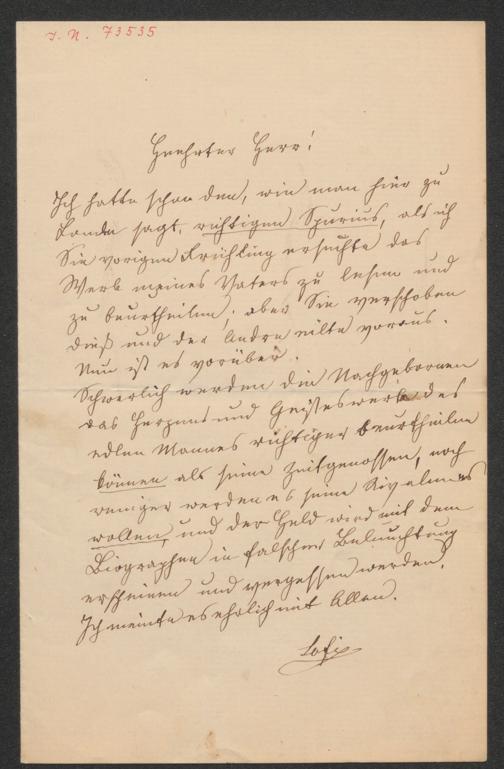 I. N. 73535
Geehrter Herr!
Ich hatte schon den, wie man hier zu
Lande sagt, richtigen Spurius, als ich
Sie vorigen Frühling ersuchte das
Werk meines Vaters zu lesen und
zu beurtheilen; aber Sie verschoben
dieß und der Andre eilte voraus.
Nun ist es vorüber.
Schwerlich werden die Nachgebornen
das Herzens und Geisteswerk des
edlen Mannes richtiger beurtheilen
können als seine Zeitgenossen, noch
weniger werden es seine Rivalen es
wollen, und der Held wird mit dem
Biographen in falscher Beleuchtung
erscheinen und vergessen werden.
Ich meinte es ehrlich mit Allen.